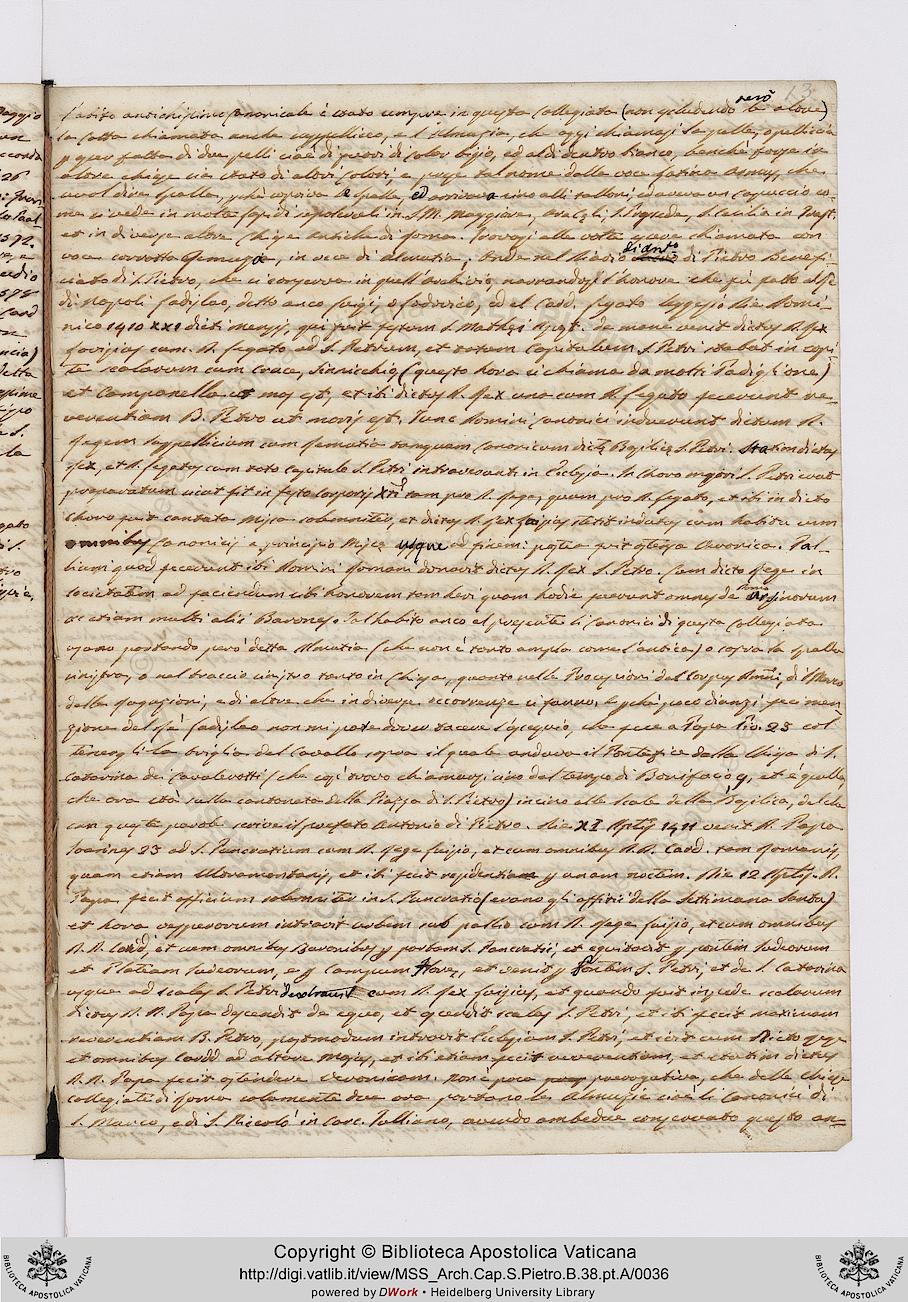 13
però
L'abito antichissimo Canonicale è stato sempre in questa Collegiata (non escludendo le altre)
la Cotta chiamata anche suppellicco, e l'Almuzia, che oggi chiamasi la pelle, o pelliccia
altre Chiese sia stato di altri colori, e prese tal nome dalla voce latina Armus, che
vuol dire spalle, perché copriva le spalle, ed arrivava sino alli talloni, ed aveva un capuccio co-
me si vede in molte lapidi sepolcrali in S. M. Maggiore, Araceli, S. Prassede, S. Cecilia in Trast.
et in diverse altre Chiese antiche di Roma. Trovasi alle volte
voce corrotta Gemuzia, in vece di Almutia; Onde nel Diario di Antonio di Pietro Benefi-
ciato di S. Pietro, che si conserva in quell'Archivio, narrandosi l'honore che fu fatto al Rè
di Napoli Ladislao, detto anco Luigi, o Lodovico, ed al Card. Legato leggesi Die Domi-
nico 1410 XXI dicti mensis, qui fuit festum S. Matthei Apost. de mane venit dictus D. Rex
Lovisius cum D. Legato ad S. Petrum, et totum Capitulum S. Petri stabat in capi-
te scalarum cum Cruce, Sinicchio (questo hora si chiama da molti Padiglione)
et Campanella ut mos est, et ibi dictus D. Rex una cum D. Legato fecerunt re-
verentiam B. Petro ut moris est. Tunc Domini Canonici induerunt dictum D.
Regem suppellicium cum Armutia tanquam Canonicum dictę Basilicę S. Petri. Statim dictus
Rex, et D. Legatus cum toto Capitulo S. Petri intraverunt in Ecclesia. In Choro maiori S. Petri erat
preparatum sicut fit in festo Corporis Xti tam pro D. Rege, quam pro D. Legato, et ibi in dicto
Choro fuit cantata Missa solemniter, et dictus D. Rex Luisius stetit indutus cum habitu cum
omnibus Canonicis a principio Missę usque ad finem: postea fuit ostensa Veronica. Pal-
lium quod fecerunt ibi Domini Romani donavit dictus D. Rex S. Petro. Cum dicto Rege in
societatem ad faciendum sibi honorem tam heri quam hodie fuerunt omnes de domo Ursinorum
ac etiam multi alii Barones. Tal habito anco al presente li Canonici di questa Collegiata
usano portando però detta Almutia (che non è tanto ampla come l'antica) o sopra la spalla
sinistra, o nel braccio sinistro tanto in Chiesa, quanto nelle Processioni del Corpus Dñi, di S. Marco
delle Rogazioni, e di altre che in diverse occorrenze si fanno. E perché poco dianzi feci men-
zione del Rè Ladislao non mi pare dover tacere l'ossequio, che fece a Papa Gio. 23 col
tenergli la briglia del Cavallo sopra il quale andava il Pontefice dalla Chiesa di S.
Catarina dei Cavalerotti (che così trovo chiamarsi sino dal tempo di Bonifacio 9, et è quella,
che ora stà sulla cantonata della Piazza di S. Pietro) insino alle scale della Basilica, del che
con queste parole scrive il prefato Antonio di Pietro. Die XI Aplis 1411 venit D. Papa
Ioannes 23 ad S. Pancratium cum D. Rege Luisio, et cum omnibus D.D. Cardd. tam Romanis,
quam etiam Ultramontanis, et ibi fecit residentiam per unam noctem. Die 12 Aplis D.
Papa fecit officium solemniter in S. Pancratio (erano gli offitii della Settimana Santa)
et hora vesperorum intravit urbem sub pallio cum D. Rege Luisio, et cum omnibus
D.D. Cardd, et cum omnibus Baronibus per portam S. Pancratii, et equitavit per pontem Iudeorum
et Plateam Iudeorum, et per Campum Florę, et venit per Pontem S. Petri, et de S. Catarina
usque ad scalas S. Petri cum D. Rex Luisius, et quando fuit in pede scalarum
dictus D. N. Papa descendit de equo, et ascendit scalas S. Petri, et ibi fecit maximam
reverentiam B. Petro, postmodum intravit Ecclesiam S. Petri, et ivit cum dicto Rege
et omnibus Cardd. ad altare Maius, et ibi etiam fecit reverentiam, et statim dictus
D. N. Papa fecit ostendere Veronicam. Non è poca prerogativa, che delle Chiese
Collegiate di Roma solamente due ora portano le Almuzie cioè li Canonici di
S. Marco, e di S. Niccolò in Carc. Tulliano, avendo ambedue conservato questo an=
Copyright © Biblioteca Apostolica Vaticana
http://digi.vatlib.it/view/MSS_Arch.Cap.S.Pietro.B.38.pt.A/0036
powered by DWork • Heidelberg University Library
BIBLIOTECA APOSTOLICA VATICANA
BIBLIOTECA APOSTOLICA VATICANA